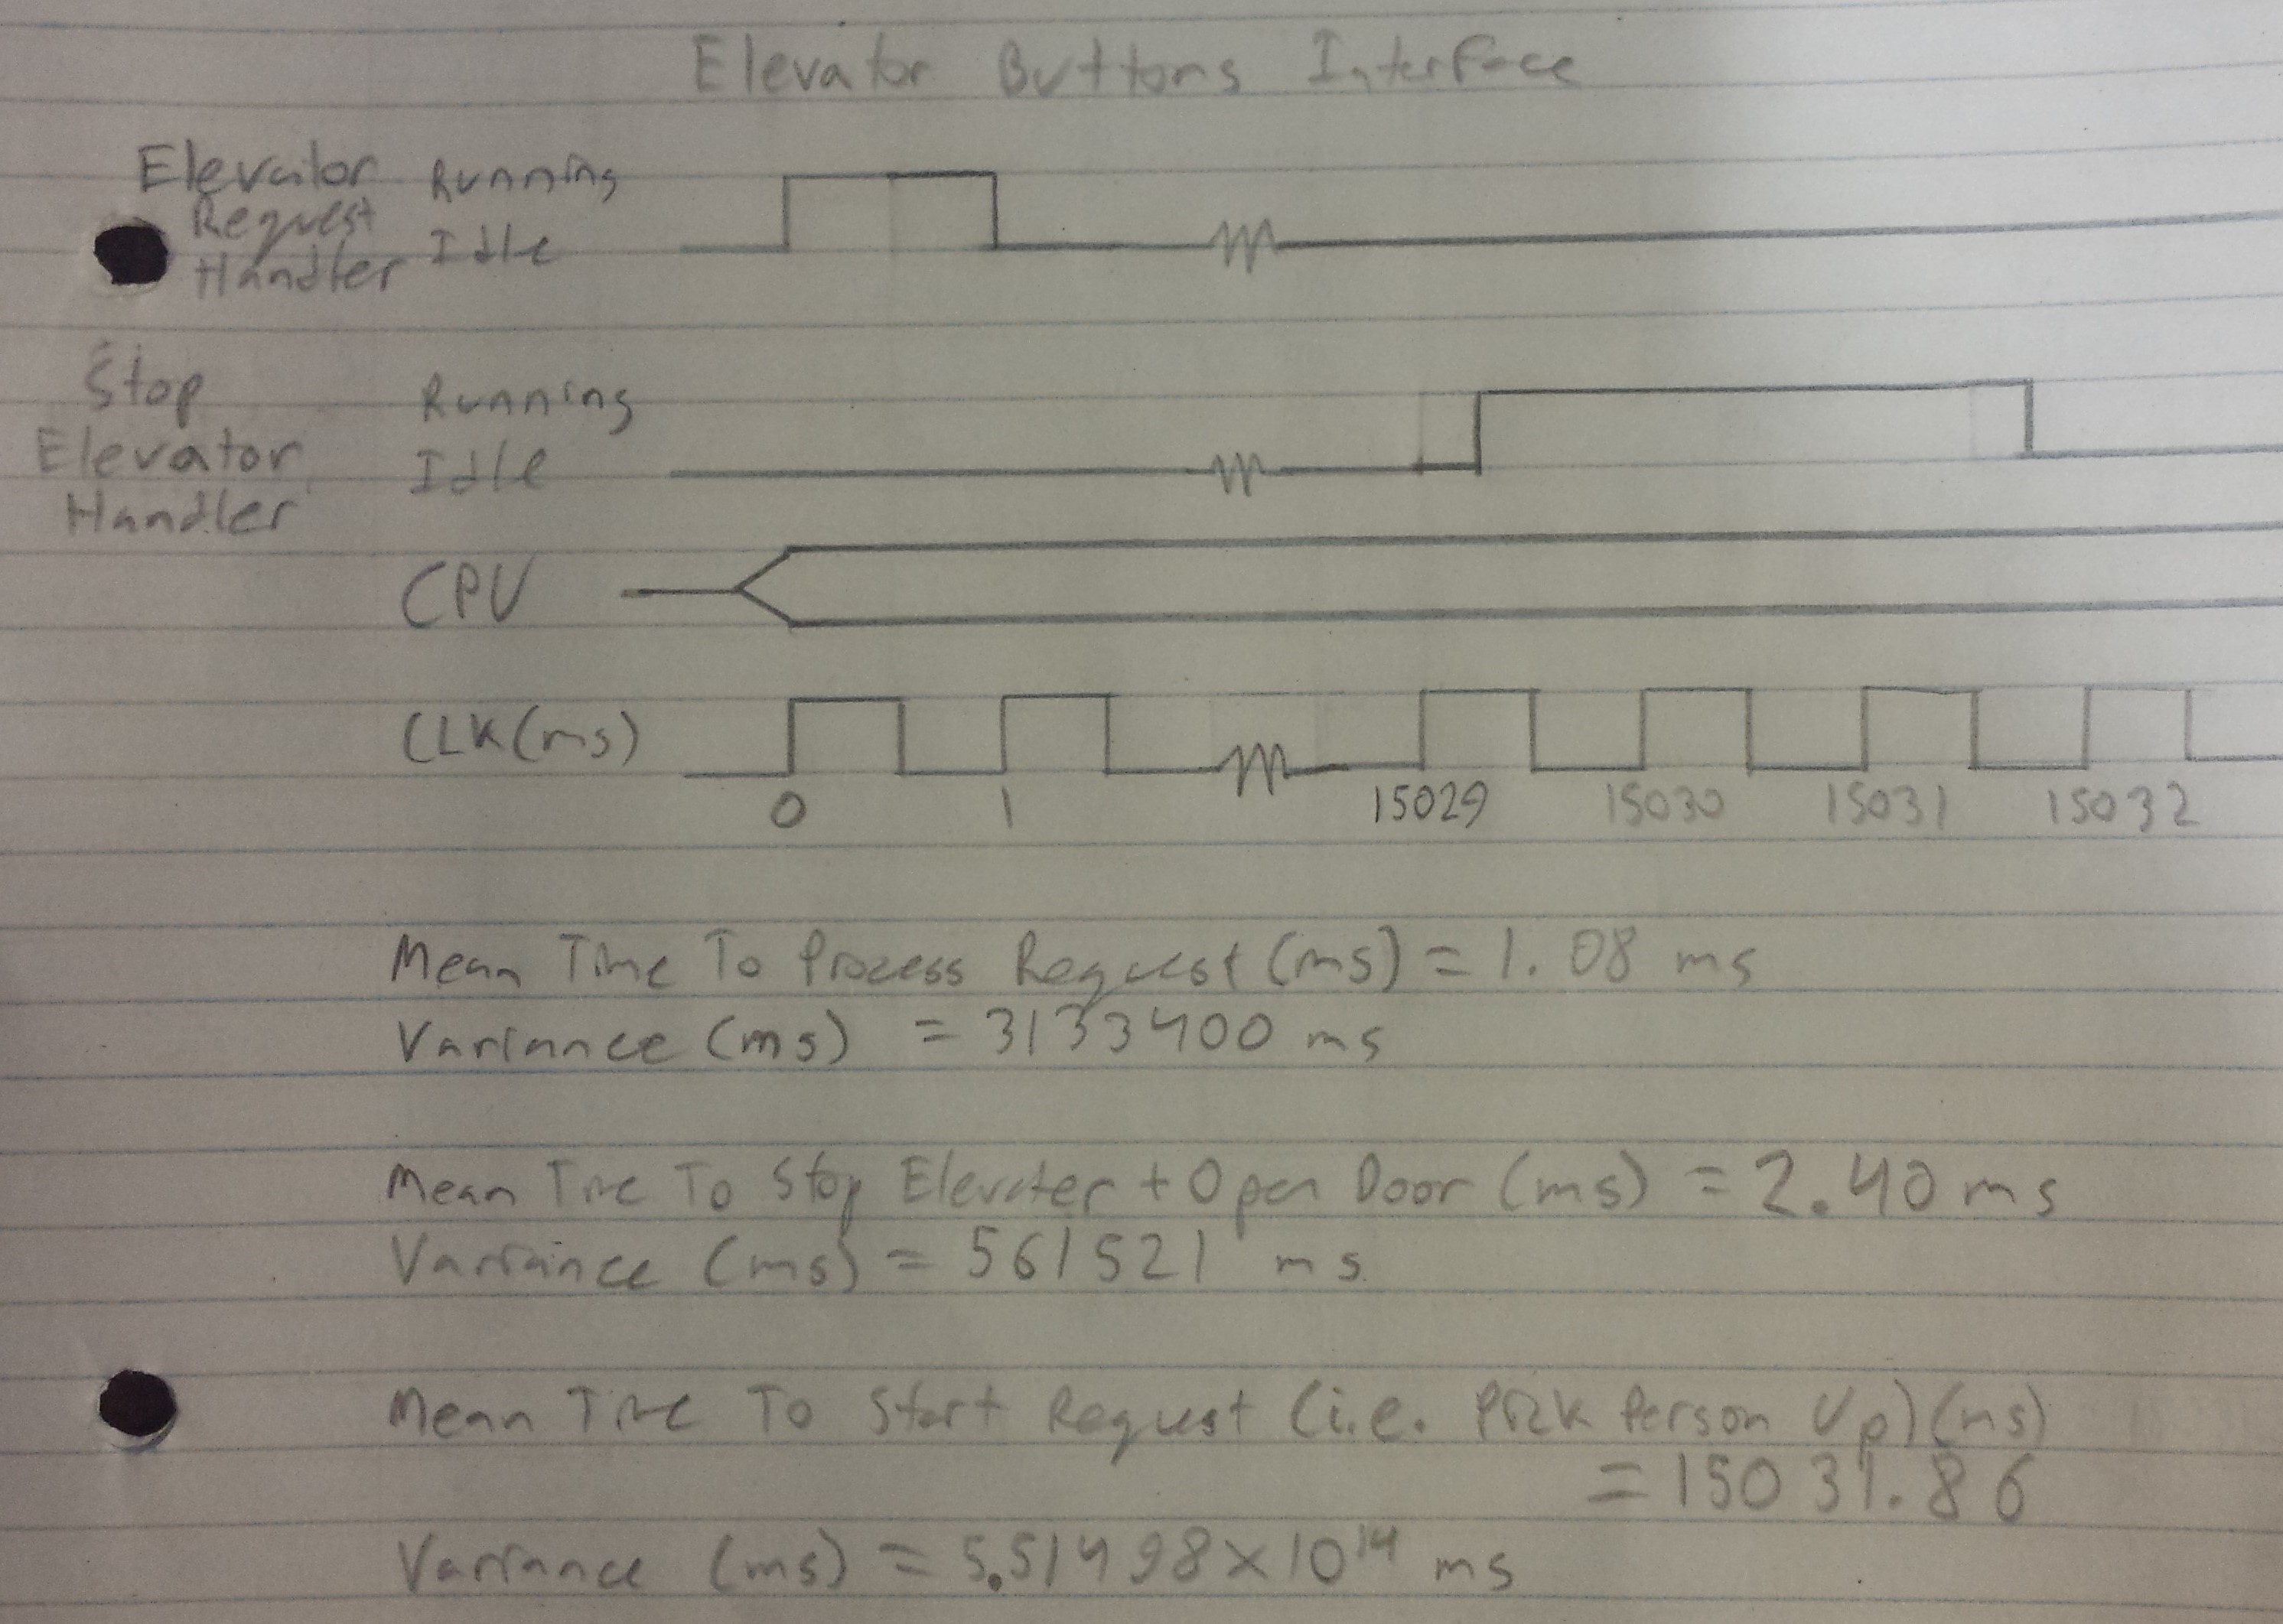 Elevator Buttons Interface
Elevator Running
Request
Handler Idle
Stop Running
Elevator Idle
Handler
CPU
CLK(ms)
0 1 15029 15030 15031 15032
Mean Time To Process Request (ms) = 1.08 ms
Variance (ms) = 3133400 ms
Mean Time To Stop Elevator + Open Door (ms) = 2.40 ms
Variance (ms) = 561521 ms
Mean Time To Start Request (i.e. Pick Person Up) (ms)
= 15031.86
Variance (ms) = 5.51498 x 10^14 ms